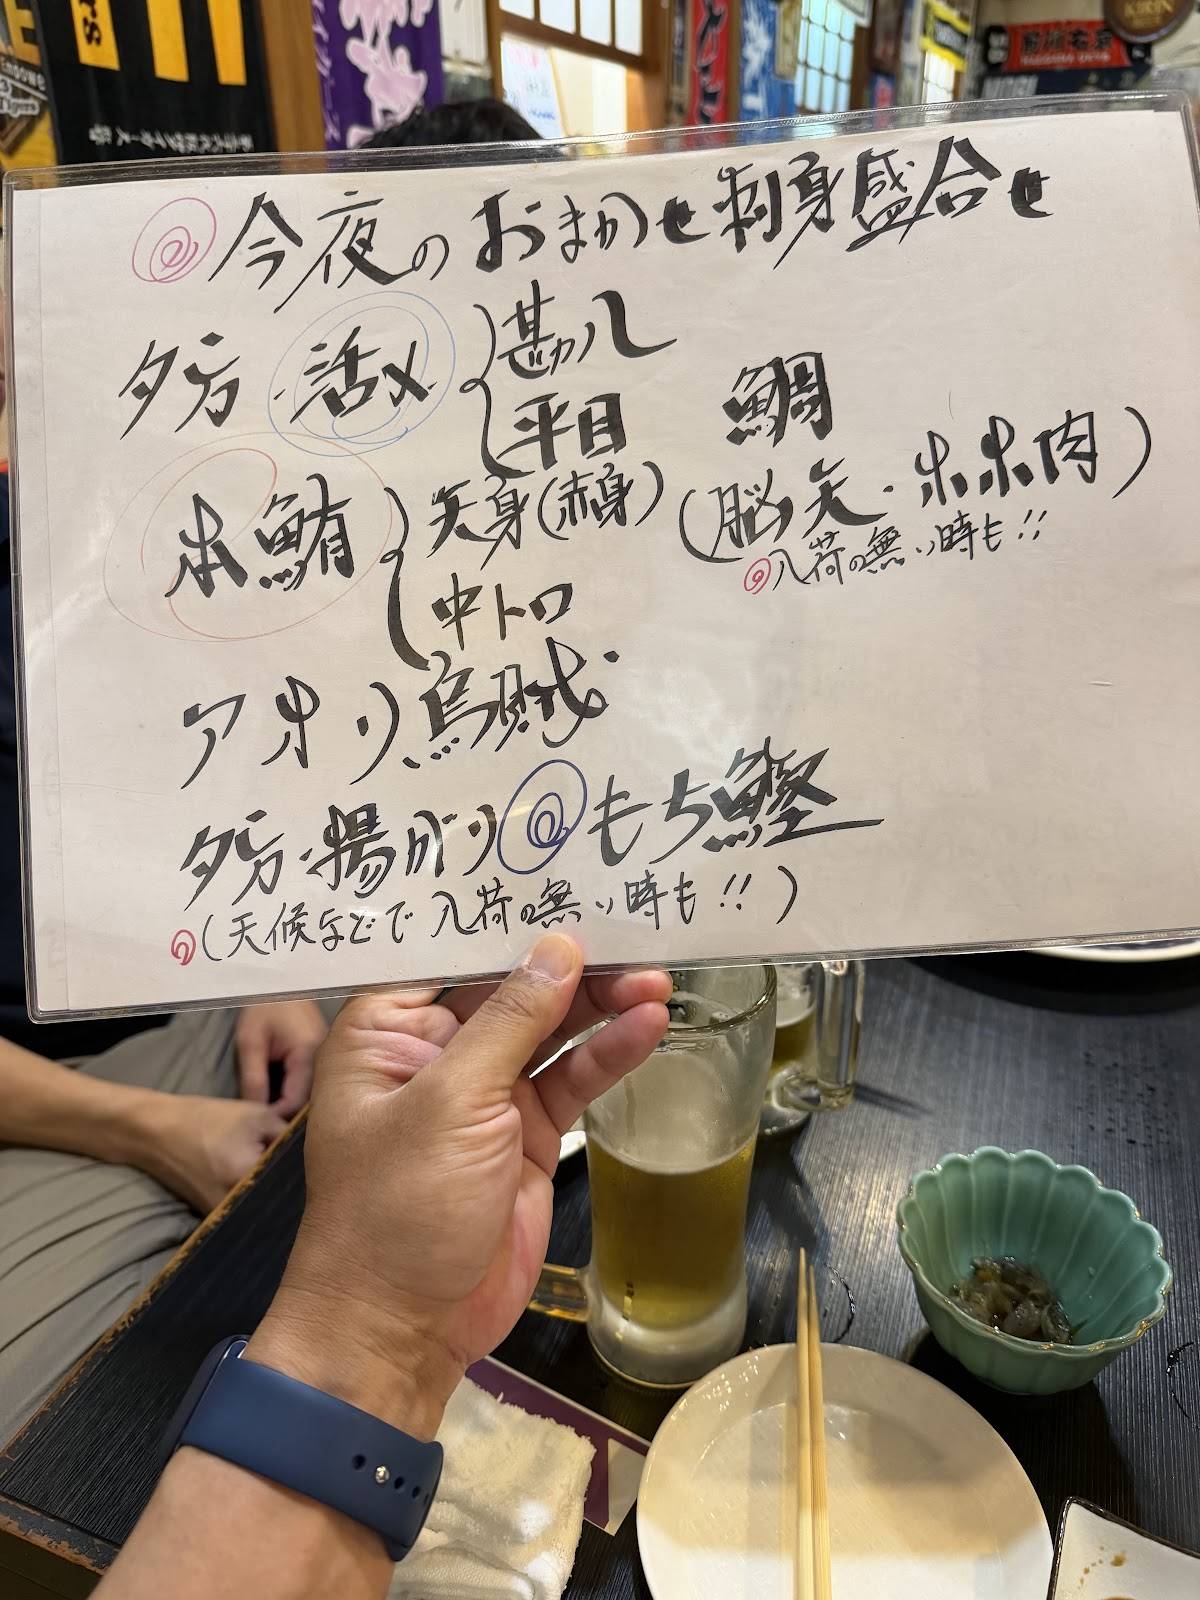 今夜のおまかせ刺身盛合せ
夕方〆活〆 勘八
平目 鯛
本鮪 天身(赤身) (脳天・ホホ肉)
入荷の無い時も!!
中トロ
アオリ烏賊
夕方揚がり もち鰹
(天候などで入荷の無い時も!!)
KIRIN
Tigers